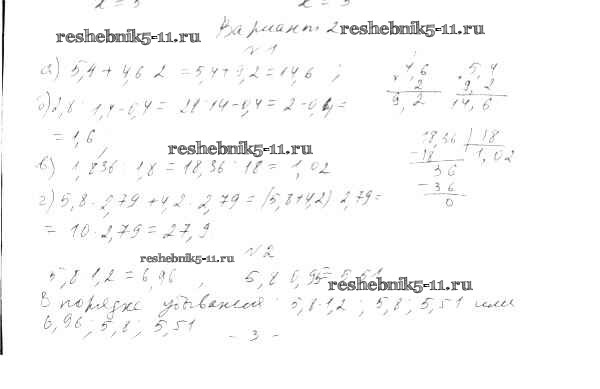 Вариант 2 reshebnik5-11.ru
reshebnik5-11.ru
№1
а) 5,4 + 4,6 · 2 = 5,4 + 9,2 = 14,6 ;
4,6
× 2
9,2
5,4
+ 9,2
14,6
б) 2,8 : 1,4 - 0,4 = 28 : 14 - 0,4 = 2 - 0,4 =
= 1,6 ;
reshebnik5-11.ru
в) 1,836 : 1,8 = 18,36 : 18 = 1,02
18,36 | 18
- 18 1,02
36
- 36
0
г) 5,8 · 2,79 + 4,2 · 2,79 = (5,8 + 4,2) · 2,79 =
= 10 · 2,79 = 27,9
reshebnik5-11.ru
№2
5,8 · 1,2 = 6,96 , 5,8 · 0,95 = 5,51
reshebnik5-11.ru
В порядке убывания : 5,8·1,2 ; 5,8 ; 5,51 или
6,96 ; 5,8 ; 5,51
- 3 -